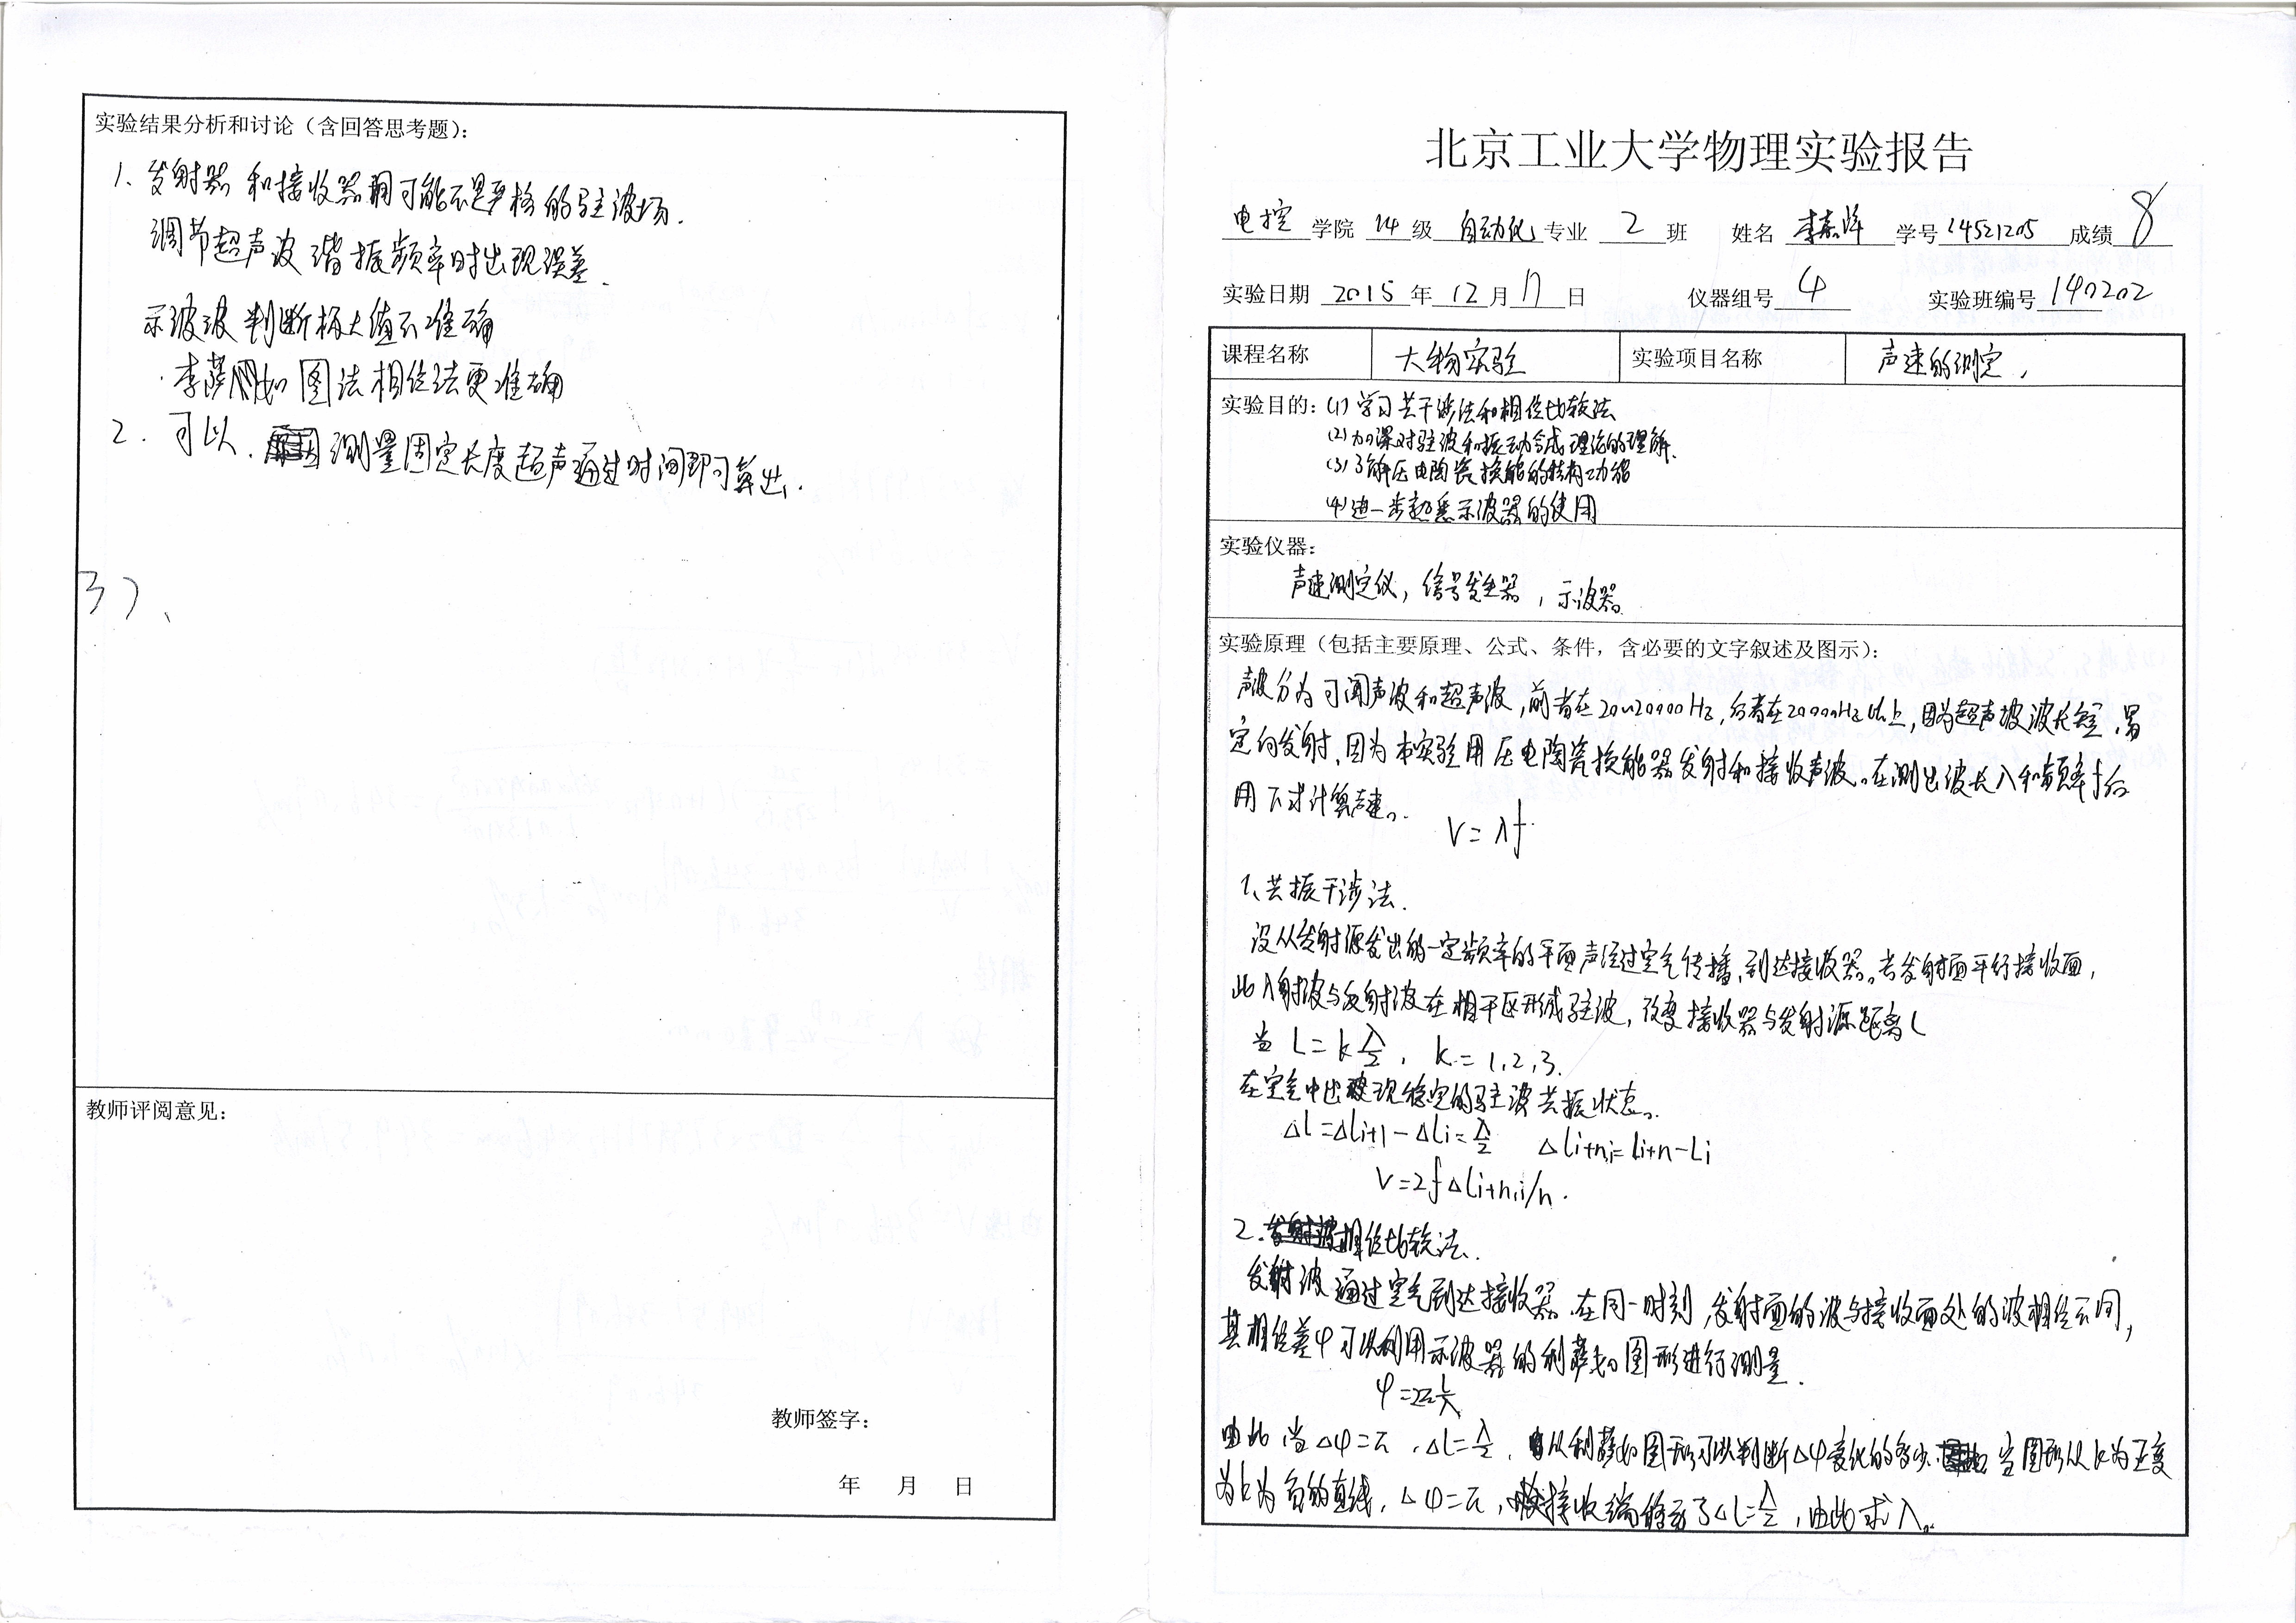 实验结果分析和讨论（含回答思考题）：
1、发射器和接收器间可能不是严格的驻波场.
调节超声波谐振频率时出现误差.
示波波判断极大值不准确
李萨如图法相位法更准确
2. 可以. 测量固定长度超声通过时间即可算出.
37、
教师评阅意见：
教师签字：
年 月 日
北京工业大学物理实验报告
电控 学院 14 级 自动化 专业 2 班 姓名 学号 14521205 成绩 8
实验日期 2015 年 12 月 17 日 仪器组号 4 实验班编号 140202
课程名称 大物实验 实验项目名称 声速的测定.
实验目的：(1) 学习共干涉法和相位比较法
(2) 加深对驻波和振动合成理论的理解.
(3) 了解压电陶瓷换能的结构功能
(4) 进一步熟悉示波器的使用
实验仪器：
声速测定仪，信号发生器，示波器。
实验原理（包括主要原理、公式、条件，含必要的文字叙述及图示）：
声波分为可闻声波和超声波，前者在20~20000Hz，后者在20000Hz以上，因为超声波波长短，易
定向发射，因为本实验用压电陶瓷换能器发射和接收声波。在测出波长λ和频率f后
用下式计算声速。
V=λf
1、共振干涉法.
设从发射源发出的一定频率的平面声经过空气传播，到达接收器。若发射面平行接收面，
此入射波与反射波在相干区形成驻波，改变接收器与发射源距离L
当 L=kλ/2，k=1,2,3.
在空气中出现稳定的驻波共振状态。
ΔL=ΔLi+1-ΔLi=λ/2 ΔLi+n,i=Li+n-Li
V=2fΔLi+n,i/n.
2. 相位比较法.
发射波通过空气到达接收器.在同一时刻，发射面的波与接收面处的波相位不同，
其相位差φ可以利用示波器的利萨如图形进行测量.
φ=2πL/λ
由此当Δφ=π，ΔL=λ/2，从利萨如图形可以判断Δφ变化的多少. 当图形从k为正变
为k为负的直线，Δφ=π，接收端移动了ΔL=λ/2，由此求λ。